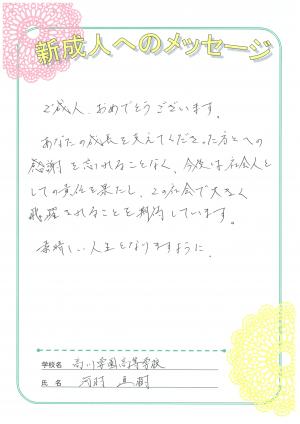 新成人へのメッセージ
ご成人、おめでとうございます。
あなたの成長を支えてくださった方々への
感謝を忘れることなく、今後は社会人と
しての責任を果たし、この社会で大きく
飛躍されることを期待しています。
素晴しい人生となりますように。
学校名 高川学園高等学校
氏名 河村